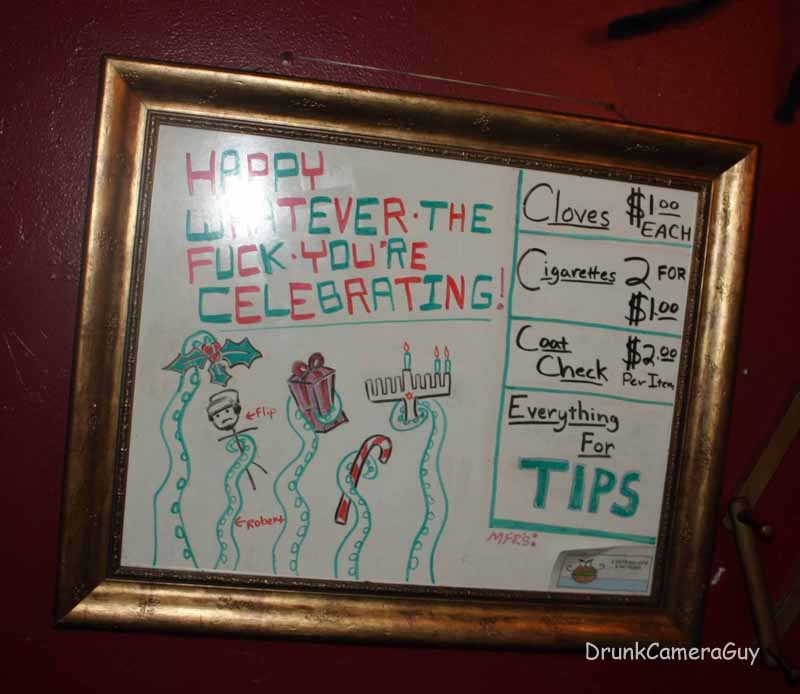 HAPPY
WHATEVER·THE
FUCK·YOU'RE
CELEBRATING!
Cloves $1.00
EACH
Cigarettes 2 FOR
$1.00
Coat $2.00
Check Per Item
Everything
For
TIPS
←Flip
←Robert
MFRS:
DrunkCameraGuy